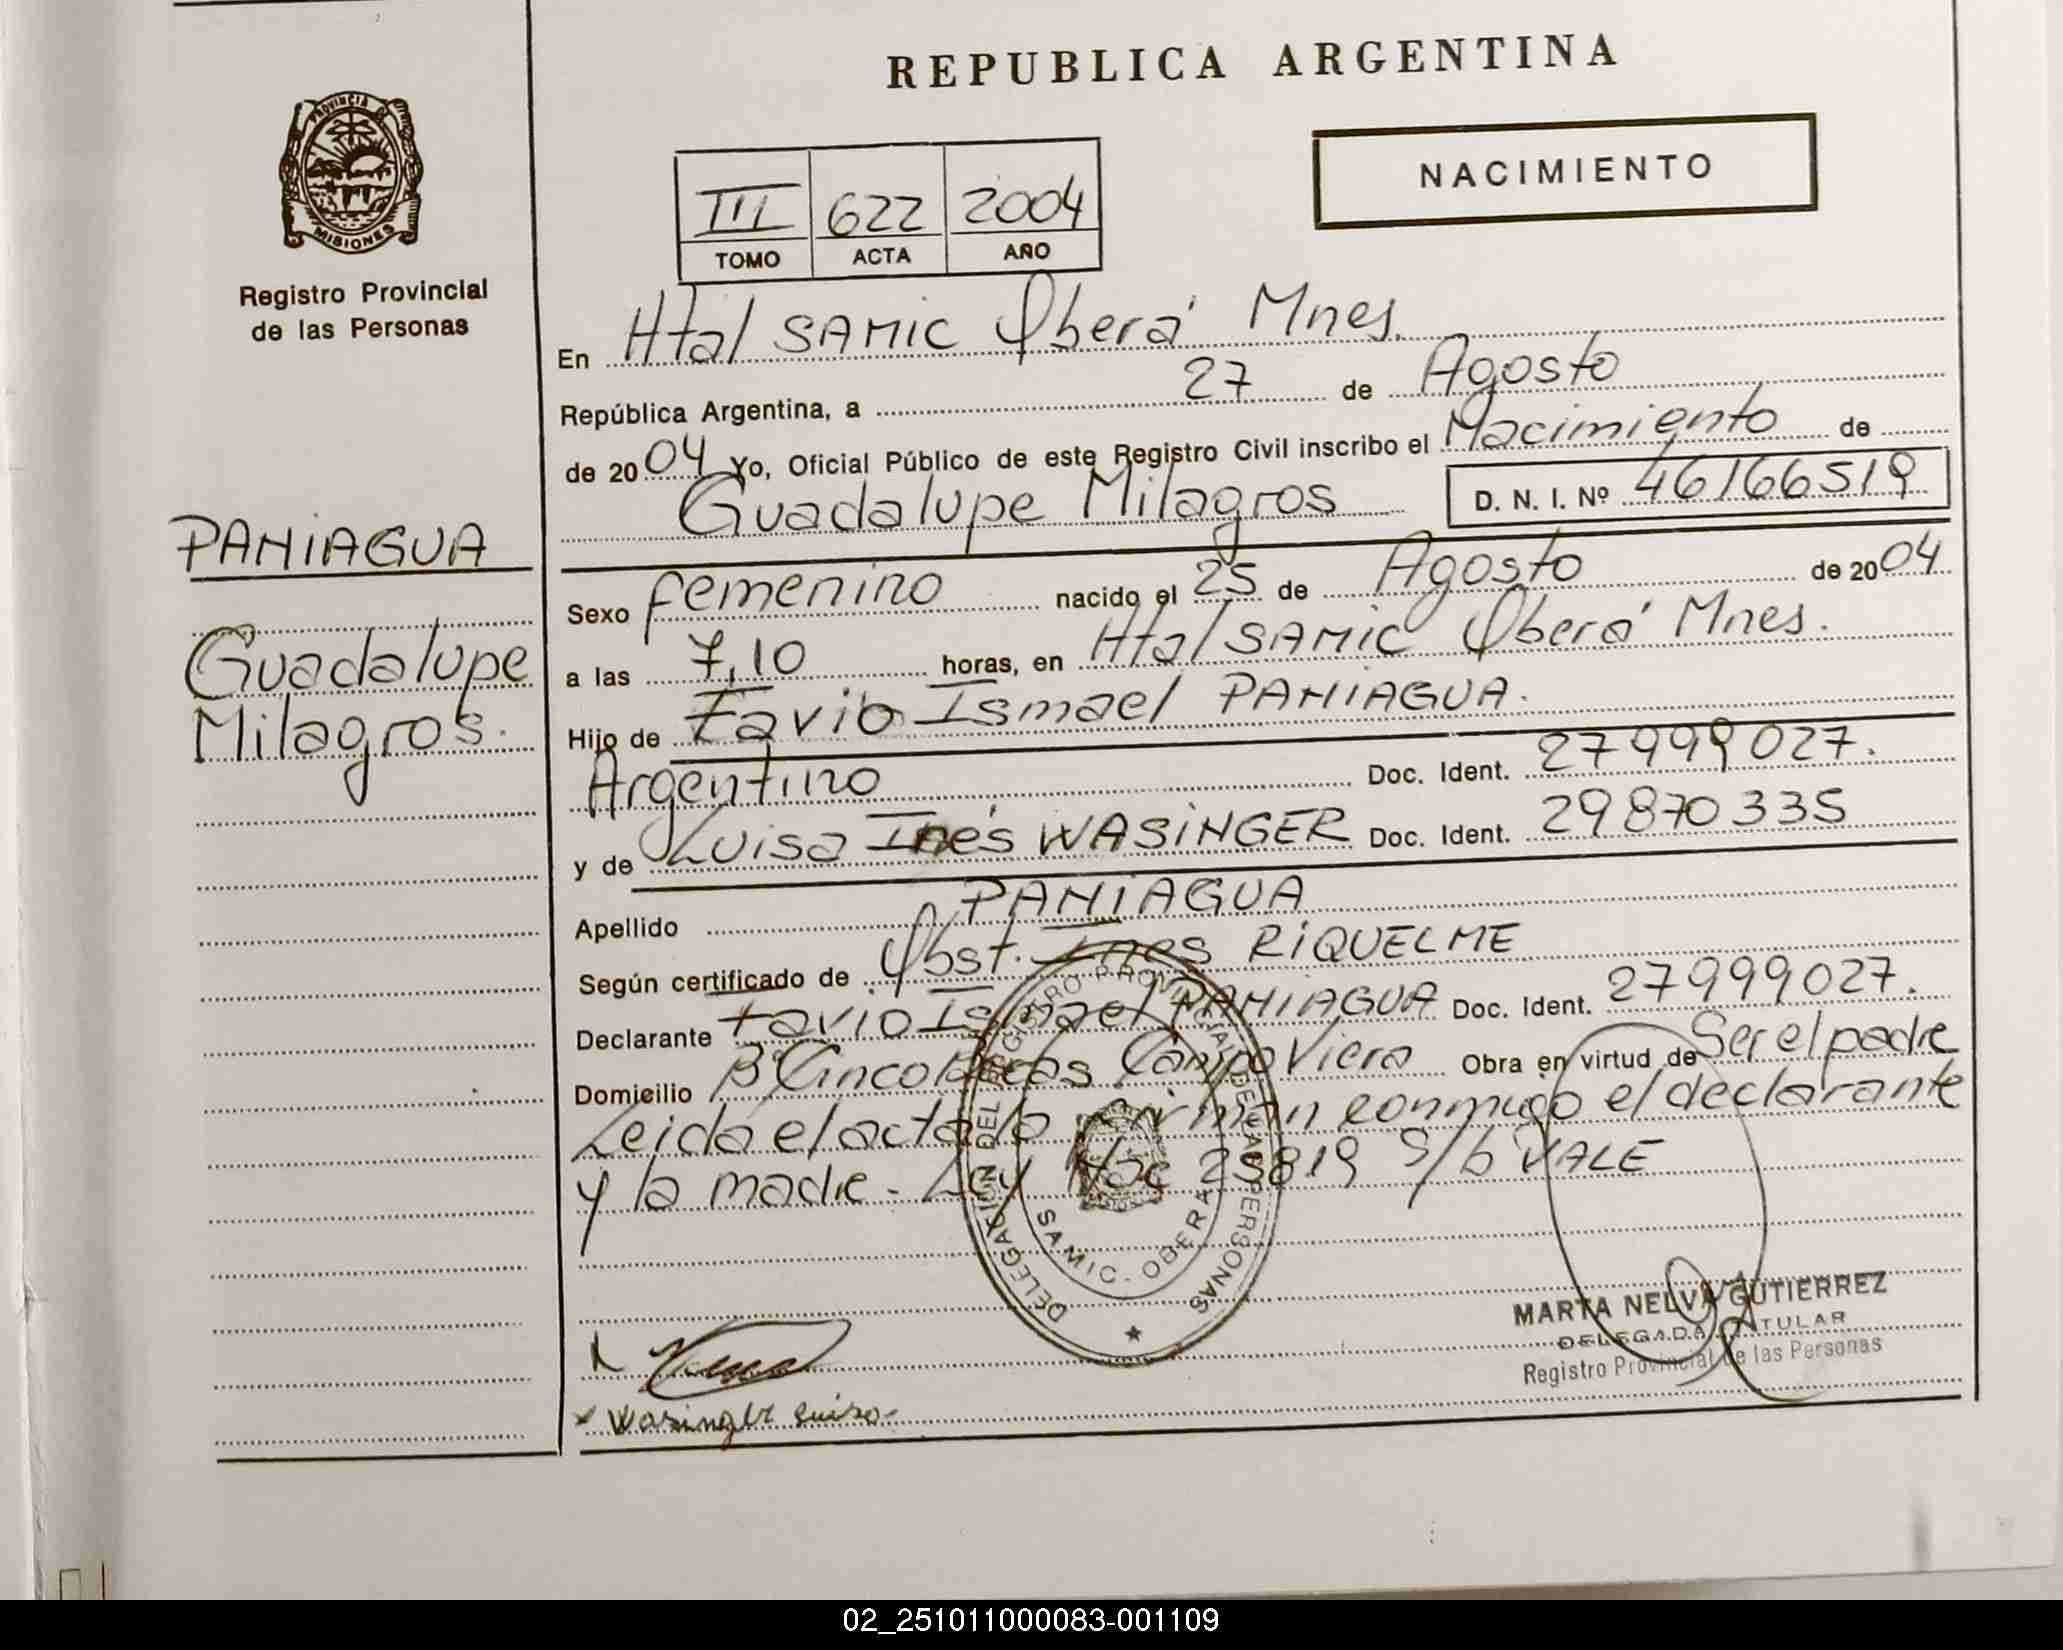 REPUBLICA ARGENTINA
NACIMIENTO
PROVINCIA DE
MISIONES
Registro Provincial
de las Personas
III 622 2004
TOMO ACTA AÑO
En Htal SAMIC Oberá Mnes.
República Argentina, a 27 de Agosto
de 2004 Yo, Oficial Público de este Registro Civil inscribo el Nacimiento de
Guadalupe Milagros D. N. I. Nº 46166519
PANIAGUA
Guadalupe
Milagros.
Sexo femenino nacido el 25 de Agosto de 2004
a las 7,10 horas, en Htal SAMIC Oberá Mnes.
Hijo de Favio Ismael PANIAGUA.
Argentino Doc. Ident. 27999027.
y de Luisa Inés WASiNGER Doc. Ident. 29870335
Apellido PANiAGUA
Según certificado de Obst. Ines RiQUELME
Declarante Favio Ismael PANIAGUA Doc. Ident. 27999027.
Domicilio Bº Cinco Campo Viera Obra en virtud de Ser el padre
Leida el acta la firman conmigo el declarante
y la madre. Ley Nac 25819 S/b VALE
DELEGACION DEL REGISTRO PROVINCIAL DE LAS PERSONAS
SAMIC. OBERA
MARTA NELVA GUTIERREZ
DELEGADA TITULAR
Registro Provincial de las Personas
Wasinger Luisa
02_251011000083-001109